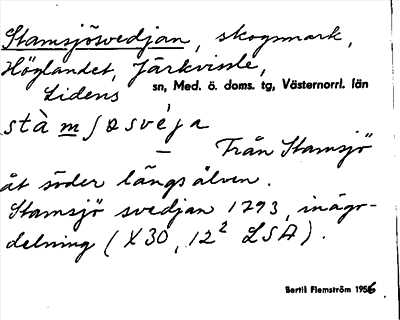 Stamsjösvedjan, skogsmark,
Höglandet, Järkvissle,
Lidens sn, Med. ö. doms. tg, Västernorrl. län
stàmʃøsvéja
Från Stamsjö
åt söder längs älven.
Stamsjö svedjan 1793, inägo-
delning (X30, 12² LSA).
Bertil Flemström 1956.